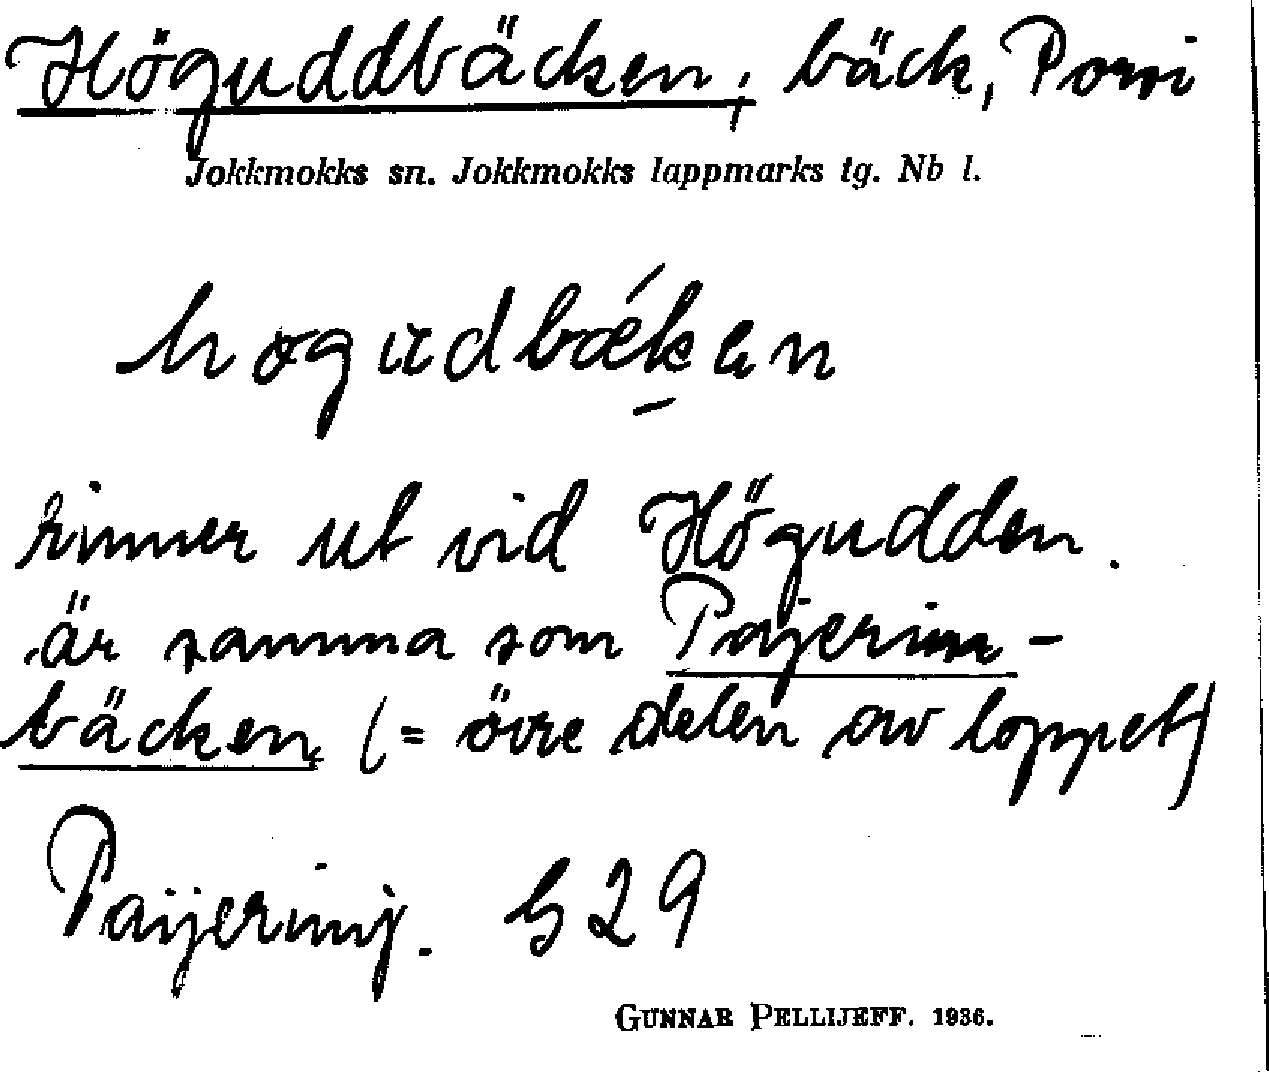 Höguddbäcken, bäck, Porsi
Jokkmokks sn. Jokkmokks lappmarks tg. Nb l.
rinner ut vid Högudden.
är samma som Paijerim-
bäcken (= övre delen av loppet)
Paijerimj. G29
GUNNAR PELLIJEFF. 1936.